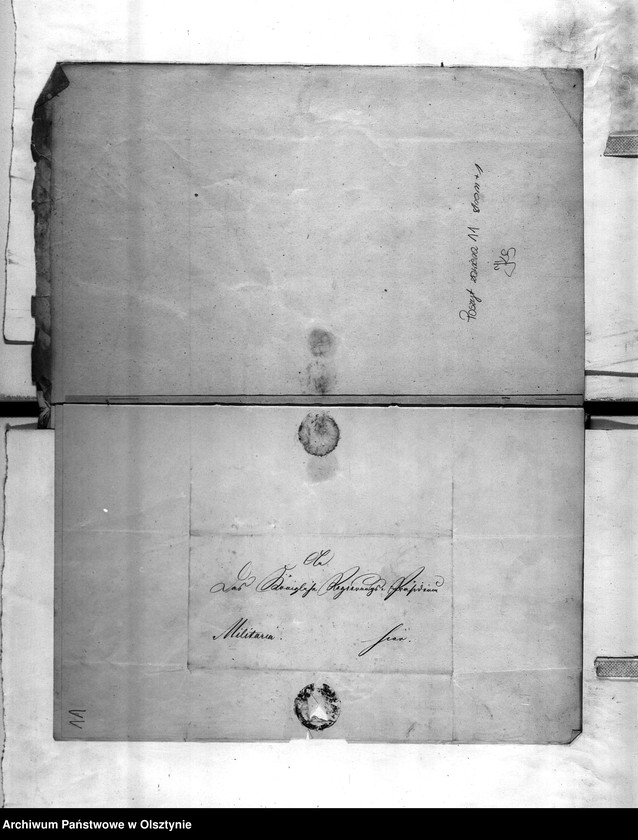 Poszyt zawiera 11 stron
An
Das Königliche Regierungs-Präsidium
Militaria.
hier.
11
Archiwum Państwowe w Olsztynie